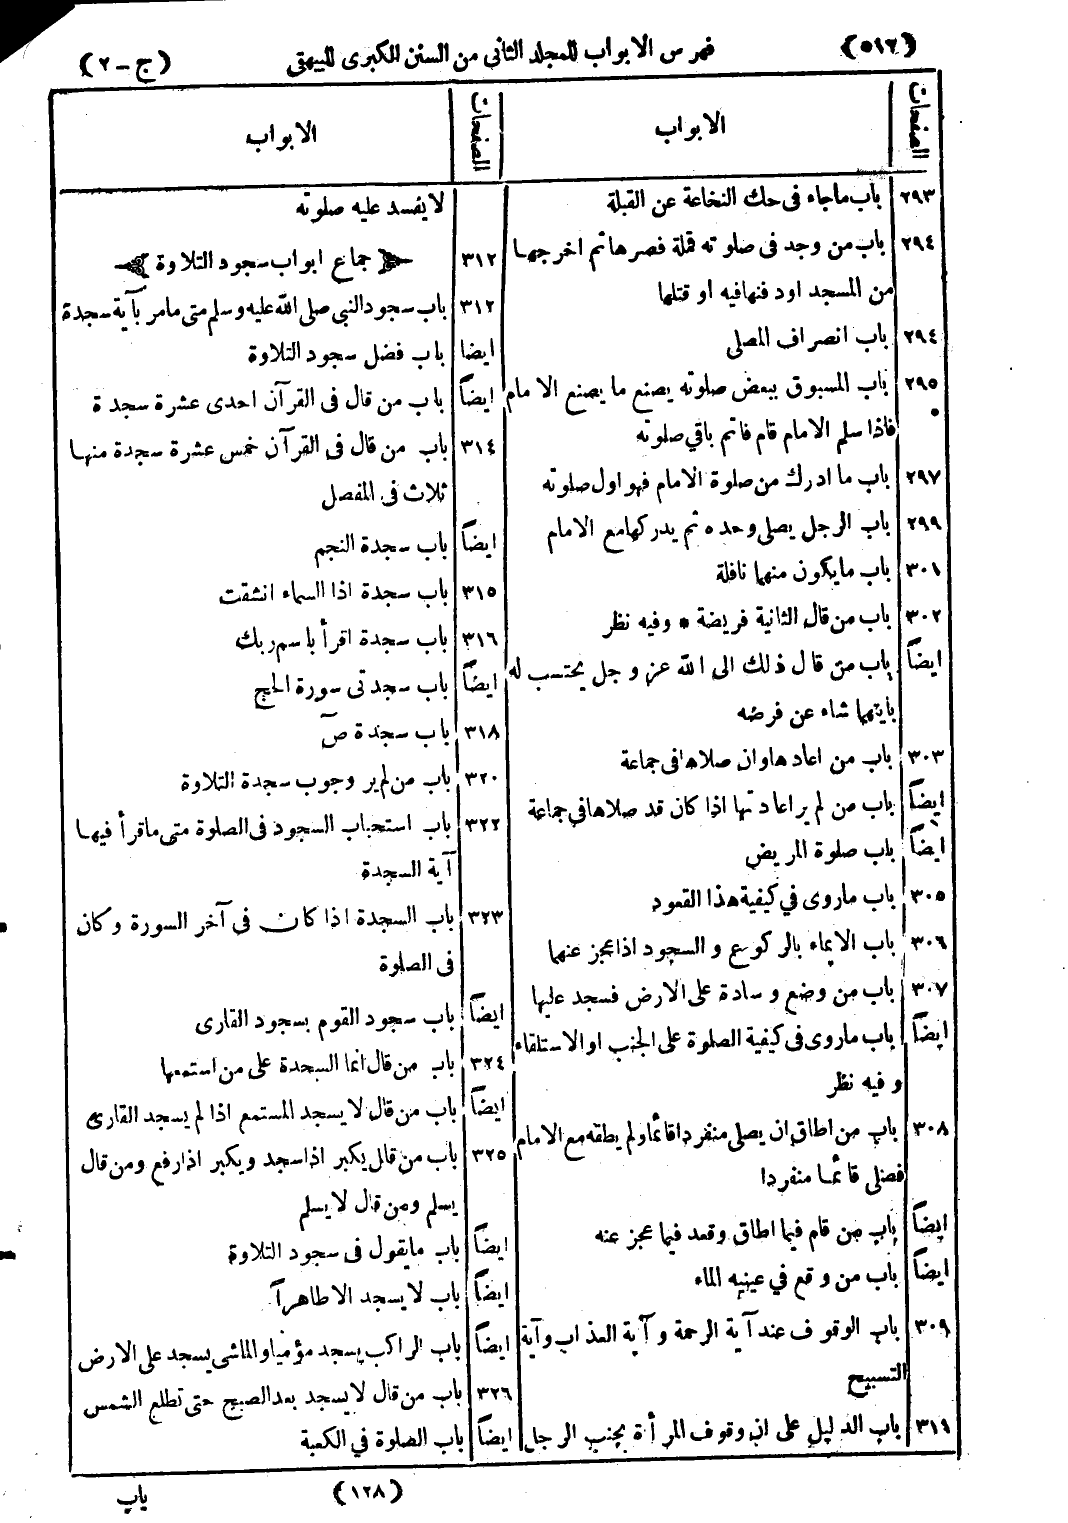 (٥١٢)
فهرس الابواب للمجلد الثانى من السنن الكبرى للبيهقى
(ج - ٢)
الصفحات
الابواب
٢٩٣ باب ماجاء فى حك النخاعة عن القبلة
٢٩٤ باب من وجد فى صلوته قملة فصرها ثم اخرجها
من المسجد او دفنها فيه او قتلها
٢٩٤ باب انصراف المصلى
٢٩٥ باب المسبوق ببعض صلوته يصنع ما يصنع الامام
فاذا سلم الامام قام فاتم باقي صلوته
٢٩٧ باب ما ادرك من صلوة الامام فهو اول صلوته
٢٩٩ باب الرجل يصلى وحده ثم يدركها مع الامام
٣٠١ باب مايكون منهما نافلة
٣٠٢ باب من قال الثانية فريضة * وفيه نظر
ايضاً باب من قال ذلك الى الله عز وجل يحتسب له
بايتهما شاء عن فرضه
٣٠٣ باب من اعادها وان صلاها فى جماعة
ايضاً باب من لم ير اعادتها اذا كان قد صلاها في جماعة
ايضاً باب صلوة المريض
٣٠٥ باب ماروى في كيفية هذا القعود
٣٠٦ باب الايماء بالركوع و السجود اذا عجز عنهما
٣٠٧ باب من وضع وسادة على الارض فسجد عليها
ايضاً باب ماروى فى كيفية الصلوة على الجنب او الاستلقاء
و فيه نظر
٣٠٨ باب من اطاق ان يصلى منفردا قائما ولم يطقه مع الامام
فصلى قائما منفردا
ايضاً باب من قام فيما اطاق وقعد فيما عجز عنه
ايضاً باب من وقع في عينيه الماء
٣٠٩ باب الوقوف عند آية الرحمة و آية العذاب وآية
التسبيح
٣١١ باب الدليل على ان وقوف المرأة بجنب الرجل
الصفحات
الابواب
لايفسد عليه صلوته
٣١٢ جماع ابواب سجود التلاوة
٣١٢ باب سجود النبى صلى الله عليه وسلم متى مامر بآية سجدة
ايضا باب فضل سجود التلاوة
ايضاً باب من قال فى القرآن احدى عشرة سجدة
٣١٤ باب من قال فى القرآن خمس عشرة سجدة منها
ثلاث فى المفصل
ايضاً باب سجدة النجم
٣١٥ باب سجدة اذا السماء انشقت
٣١٦ باب سجدة اقرأ باسم ربك
ايضاً باب سجدتى سورة الحج
٣١٨ باب سجدة صٓ
٣٢٠ باب من لم ير وجوب سجدة التلاوة
٣٢٢ باب استحباب السجود فى الصلوة متى ماقرأ فيها
آية السجدة
٣٢٣ باب السجدة اذا كان فى آخر السورة وكان
فى الصلوة
ايضاً باب سجود القوم بسجود القارى
٣٢٤ باب من قال انما السجدة على من استمعها
ايضاً باب من قال لايسجد المستمع اذا لم يسجد القارى
٣٢٥ باب من قال يكبر اذا سجد ويكبر اذا رفع ومن قال
يسلم ومن قال لايسلم
ايضاً باب مايقول فى سجود التلاوة
ايضاً باب لايسجد الا طاهراً
ايضاً باب الراكب يسجد مؤميا والماشى يسجد على الارض
٣٢٦ باب من قال لايسجد بعد الصبح حتى تطلع الشمس
ايضاً باب الصلوة في الكعبة
(١٢٨)
باب